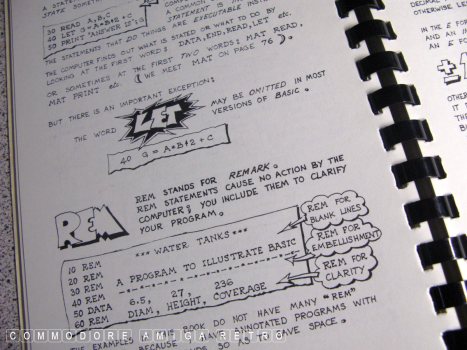 STATE SOMETHING
30 READ A,B,C
40 LET G = A*B↑2 + C
50 PRINT "ANSWER IS";
STATEMENT IS
THE STATEMENTS THAT DO THINGS ARE EXECUTABLE
THE COMPUTER FINDS OUT WHAT IS STATED OR WHAT TO DO BY
LOOKING AT THE FIRST WORD: DATA, END, READ, LET etc.
OR SOMETIMES AT THE FIRST TWO WORDS: MAT READ,
MAT PRINT etc. (WE MEET MAT ON PAGE 76)
BUT THERE IS AN IMPORTANT EXCEPTION:
THE WORD LET MAY BE OMITTED IN MOST
VERSIONS OF BASIC.
40 G = A*B↑2 + C
REM
REM STANDS FOR REMARK.
REM STATEMENTS CAUSE NO ACTION BY THE
COMPUTER; YOU INCLUDE THEM TO CLARIFY
YOUR PROGRAM.
10 REM
20 REM *** WATER TANKS ***
30 REM A PROGRAM TO ILLUSTRATE BASIC
40 REM
50 DATA 6.5, 27, 236
60 REM DIAM, HEIGHT, COVERAGE
REM FOR
BLANK LINES
REM FOR
EMBELLISHMENT
REM FOR
CLARITY
THE EXAMPLES IN THIS BOOK DO NOT HAVE MANY "REM"
BECAUSE I HAVE ANNOTATED PROGRAMS WITH
SO AS TO SAVE SPACE.
DECIMAL
OTHERWISE
IN THE E
AND AN
AN E
OTHER
IT
BOTH
AND
COMMODORE AMIGA RETRO